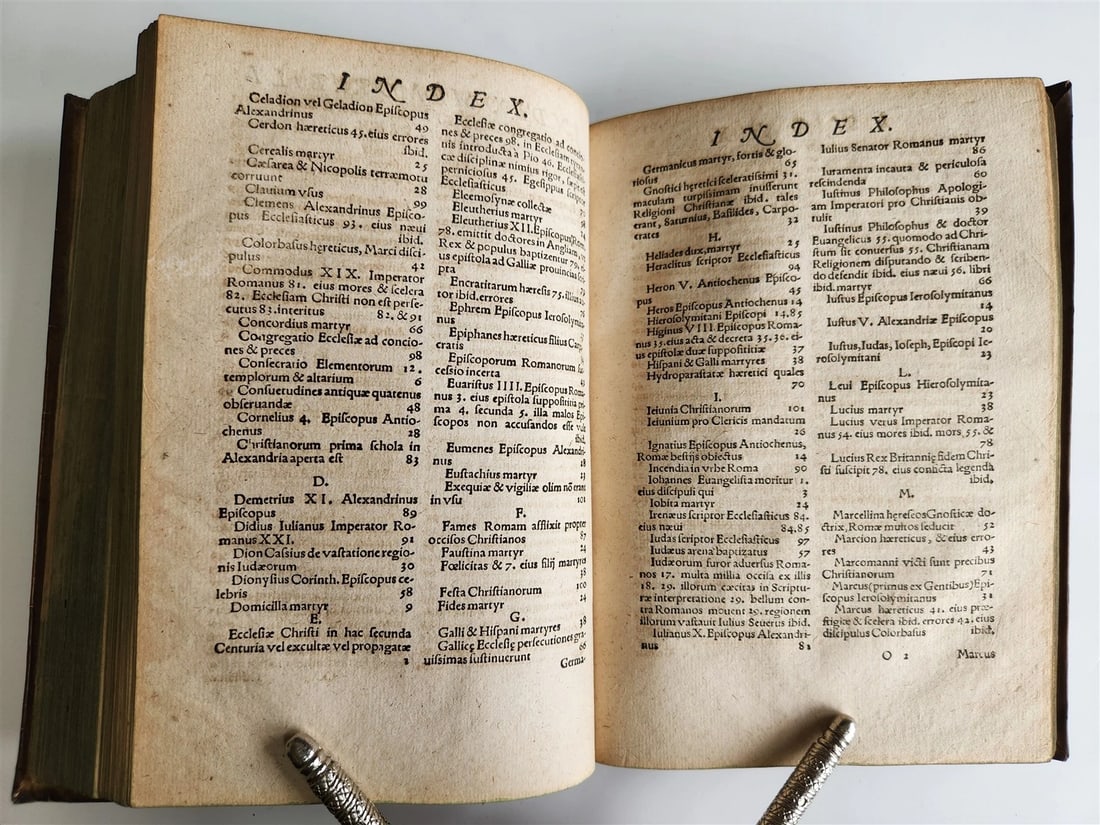 INDEX.
Celadion vel Geladion Episcopus
Alexandrinus 49
Cerdon hæreticus 45. eius errores
ibid.
Cerealis martyr 25
Cæsarea & Nicopolis terræmotu
corruunt 28
Clauium vsus 99
Clemens Alexandrinus Episco-
pus Ecclesiasticus 93. eius næui
ibid.
Colorbasus hęreticus, Marci disci-
pulus 42
Commodus XIX. Imperator
Romanus 81. eius mores & scelera
82. Ecclesiam Christi non est perse-
cutus 83. interitus 82. & 91
Concordius martyr 66
Congregatio Ecclesiæ ad concio-
nes & preces 98
Consecratio Elementorum 12.
templorum & altarium 6
Consuetudines antiquæ quatenus
obseruandæ 48
Cornelius 4. Episcopus Antio-
chenus 28
Christianorum prima schola in
Alexandria aperta est 83
D.
Demetrius XI. Alexandrinus
Episcopus 89
Didius Iulianus Imperator Ro-
manus XXI. 91
Dion Cassius de vastatione regio-
nis Iudæorum 30
Dionysius Corinth. Episcopus ce-
lebris 58
Domicilla martyr 9
E.
Ecclesiæ Christi in hac secunda
Centuria vel excultæ vel propagatæ
1
Ecclesiæ congregatio ad
nes & preces 98. in Ecclesiam
nis introducta à Pio 46. Ecclesi
cæ disciplinæ nimius rigor,
perniciosus 45. Egesippus scriptor
Ecclesiasticus
Eleemosynæ collectæ
Eleutherius martyr
Eleutherius XII. Episcopus Rom.
78. emittit doctores in Angliam,
Rex & populus baptizentur 79.
us epistola ad Galliæ prouincias
pta
Encratitarum hæresis 75.
tor ibid. errores
Ephrem Episcopus Ierosolymita
nus
Epiphanes hæreticus filius Car
cratis
Episcoporum Romanorum
cessio incerta
Euaristus IIII. Episcopus Roma
nus 3. eius epistola supposititia
ma 4. secunda 5. illa malos Epi-
scopos non accusandos esse
ibid.
Eumenes Episcopus Alexandri
nus 28
Eustachius martyr 23
Exequiæ & vigiliæ olim nō erant
in vsu 101
F.
Fames Romam afflixit propter
occisos Christianos 87
Faustina martyr 24
Fœlicitas & 7. eius filij martyres
38
Festa Christianorum 100
Fides martyr 24
G.
Galli & Hispani martyres 38
Gallicę Ecclesię persecutiones gra-
uissimas sustinuerunt 66
Germa-
INDEX.
Germanicus martyr, fortis & glo-
riosus 65
Gnostici hęretici sceleratissimi 31.
maculam turpissimam inusserunt
Religioni Christianæ ibid. tales
erant, Saturnius, Basilides, Carpo-
crates 32
H.
Heliades dux, martyr 25
Heraclitus scriptor Ecclesiasticus
94
Heron V. Antiochenus Episco-
pus 45
Heros Episcopus Antiochenus 14
Hierosolymitani Episcopi 14.85
Higinus VIII. Episcopus Roma-
nus 35. eius acta & decreta 35.36. ei-
us epistolæ duæ supposititiæ 37
Hispani & Galli martyres 38
Hydroparastatæ hæretici quales
70
I.
Ieiunia Christianorum 101
Ieiunium pro Clericis mandatum
26
Ignatius Episcopus Antiochenus,
Romæ bestijs obiectus 14
Incendia in vrbe Roma 90
Iohannes Euangelista moritur 1.
eius discipuli qui 3
Iobita martyr 24
Irenæus scriptor Ecclesiasticus 84.
eius næui 84.85
Iudas scriptor Ecclesiasticus 97
Iudæus arena baptizatus 57
Iudæorum furor aduersus Roma-
nos 17. multa millia occisa ex illis
18. 29. illorum cæcitas in Scriptu-
ræ interpretatione 29. bellum con-
tra Romanos mouent 29. regionem
illorum vastauit Iulius Seuerus ibid.
Iulianus X. Episcopus Alexandri-
nus 81
Iulius Senator Romanus martyr
86
Iuramenta incauta & periculosa
rescindenda 60
Iustinus Philosophus Apologi-
am Imperatori pro Christianis ob-
tulit 39
Iustinus Philosophus & doctor
Euangelicus 55. quomodo ad Chri-
stum sit conuersus 55. Christianam
Religionem disputando & scriben-
do defendit ibid. eius næui 56. libri
ibid. martyr 66
Iustus Episcopus Ierosolymitanus
14
Iustus V. Alexandriæ Episcopus
20
Iustus, Iudas, Ioseph, Episcopi Ie-
rosolymitani 23
L.
Leui Episcopus Hierosolymita-
nus 23
Lucius martyr 38
Lucius verus Imperator Roma-
nus 54. eius mores ibid. mors 55. &
78.
Lucius Rex Britannię fidem Chri-
sti suscipit 78. eius conficta legenda
ibid.
M.
Marcellina hęreseos Gnosticæ do-
ctrix, Romæ multos seducit 52
Marcion hæreticus, & eius erro-
res 43
Marcomanni victi sunt precibus
Christianorum 71
Marcus (primus ex Gentibus) Epi-
scopus Ierosolymitanus 31
Marcus hæreticus 41. eius præ-
stigiæ & scelera ibid. errores 42. eius
discipulus Colorbasus ibid.
O 2 Marcus